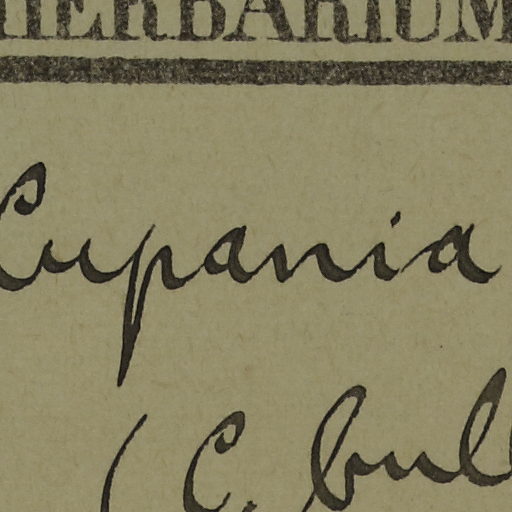 HERBARIUM
Cupania
(C. bull